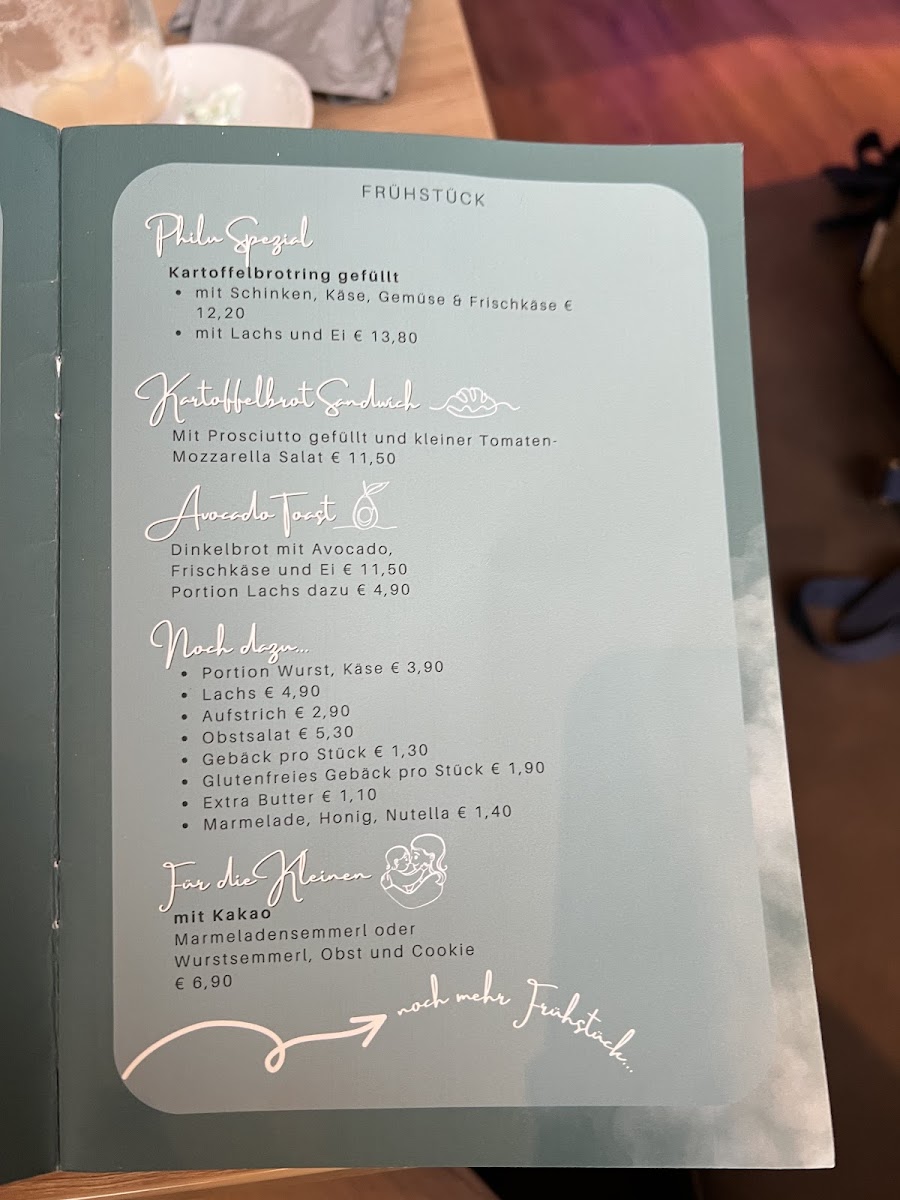 FRÜHSTÜCK
Philu Spezial
Kartoffelbrotring gefüllt
• mit Schinken, Käse, Gemüse & Frischkäse €
12,20
• mit Lachs und Ei € 13,80
Kartoffelbrot Sandwich
Mit Prosciutto gefüllt und kleiner Tomaten-
Mozzarella Salat € 11,50
Avocado Toast
Dinkelbrot mit Avocado,
Frischkäse und Ei € 11,50
Portion Lachs dazu € 4,90
Noch dazu...
• Portion Wurst, Käse € 3,90
• Lachs € 4,90
• Aufstrich € 2,90
• Obstsalat € 5,30
• Gebäck pro Stück € 1,30
• Glutenfreies Gebäck pro Stück € 1,90
• Extra Butter € 1,10
• Marmelade, Honig, Nutella € 1,40
Für die Kleinen
mit Kakao
Marmeladensemmerl oder
Wurstsemmerl, Obst und Cookie
€ 6,90
noch mehr Frühstück...